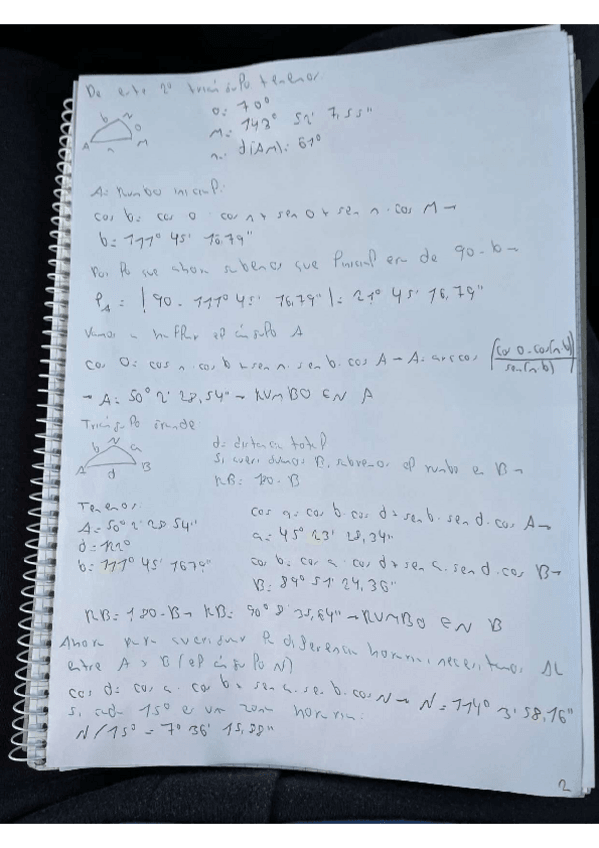 De este 2º triángulo tenemos:
b N
o
A n M
o: 70º
M= 143º 52' 7,55"
n= d(AM): 61º
A= rumbo inicial.
cos b= cos o · cos n + sen o + sen n · cos M →
b= 111º 45' 16,79"
Por lo que ahora sabemos que l inicial era de 90-b →
lA = | 90 - 111º 45' 16,79" | = 21º 45' 16,79"
Vamos a hallar el ángulo A
cos o= cos n · cos b + sen n · sen b · cos A → A= arccos (cos o - cos(n·b) / sen(n·b))
→ A= 50º 2' 28,54" → RUMBO EN A
Triángulo grande
b N a
A d B
d= distancia total
Si averiguamos B, sabremos el rumbo en B →
RB= 180-B
Tenemos:
A= 50º 2' 28 54"
d= 122º
b= 111º 45' 16 79"
cos a= cos b · cos d + sen b · sen d · cos A →
a= 45º 23' 28,34"
cos b= cos a · cos d + sen a · sen d · cos B →
B= 89º 51' 24,36"
RB= 180-B → RB= 90º 8' 35,64" → RUMBO EN B
Ahora para averiguar la diferencia horaria, necesitamos ΔL
entre A y B (el ángulo N)
cos d= cos a · cos b + sen a · sen b · cos N → N= 114º 3' 58,16"
Si cada 15º es una zona horaria:
N/15º = 7º 36' 15,88"
2